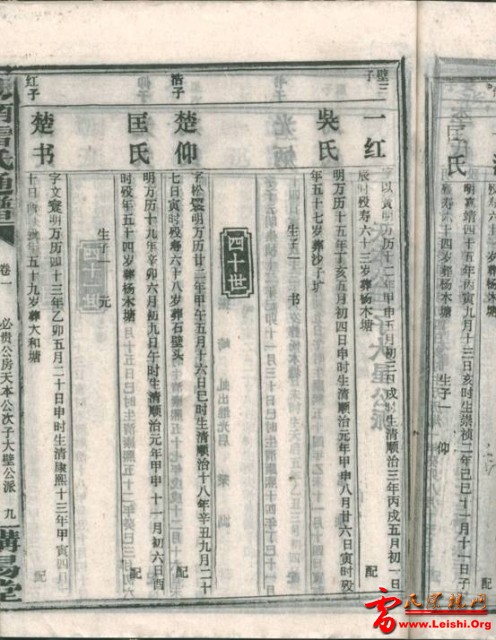 壁三子
一红
字以寅明万历十二年甲申五月初三日戌时生清顺治三年丙戌五月初一日
辰时殁寿六十三岁葬杨木塘
配
吳氏
明万历十五年丁亥五月初四日申时生清顺治元年甲申八月廿六日寅时殁
年五十七岁葬沙子圹
生子一
书
四十世
浩子
楚仰
字松翠明万历廿二年甲午五月十六日巳时生清顺治十八年辛丑九月二十
七日寅时殁寿六十八岁葬石壁头
配
匡氏
明万历十九年辛卯六月初九日午时生清顺治元年甲申十一月初六日酉
时殁年五十四岁葬杨木塘
生子一
元
红子
楚书
字文寔明万历四十三年乙卯五月二十日申时生清康熙十三年甲寅四月
十日
年五十九岁葬大和塘
配
通譜
卷一
必贵公房天本公次子大壁公派
九
講易堂
匡氏
明嘉靖四十五年丙寅九月十三日亥时生崇祯二年己巳十二月十一日子
时殁寿六十四岁葬杨木塘
生子一
仰
www.Leishi.Org